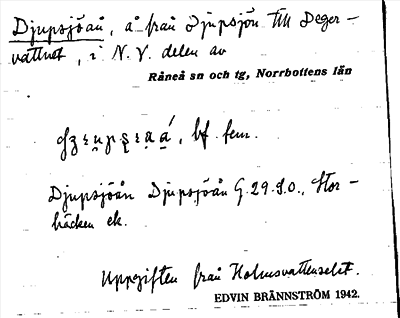 Djupsjöån, å från Djupsjön till Deger-
vattnet, i N. V. delen av
Råneå sn och tg, Norrbottens län
bf fem.
Djupsjöån Djupsjöån G. 29.S.O., Stor-
bäcken ek.
Uppgiften från Holmsvattenselet.
EDVIN BRÄNNSTRÖM 1942.